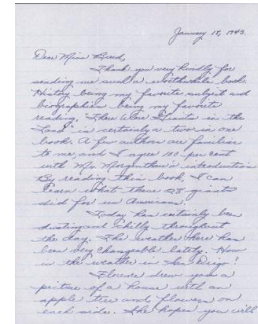 January 18, 1943.
Dear Miss Breed,
Thank you very kindly for
sending me such a worthwhile book.
History being my favorite subject and
biographies being my favorite
reading, "There Were Giants in the
Land" is certainly a two in one
book. A few authors are familiar
to me and I agree 100 per cent
with Mr. Morgenthau's introduction.
By reading this book, I can
learn what these 28 giants
did for us Americans.
Today has certainly been
dusty and chilly throughout
the day. The weather here has
been very changeable lately. How
is the weather in San Diego?
Florence drew you a
picture of a house with an
apple tree and flowers on
each side. She hopes you will